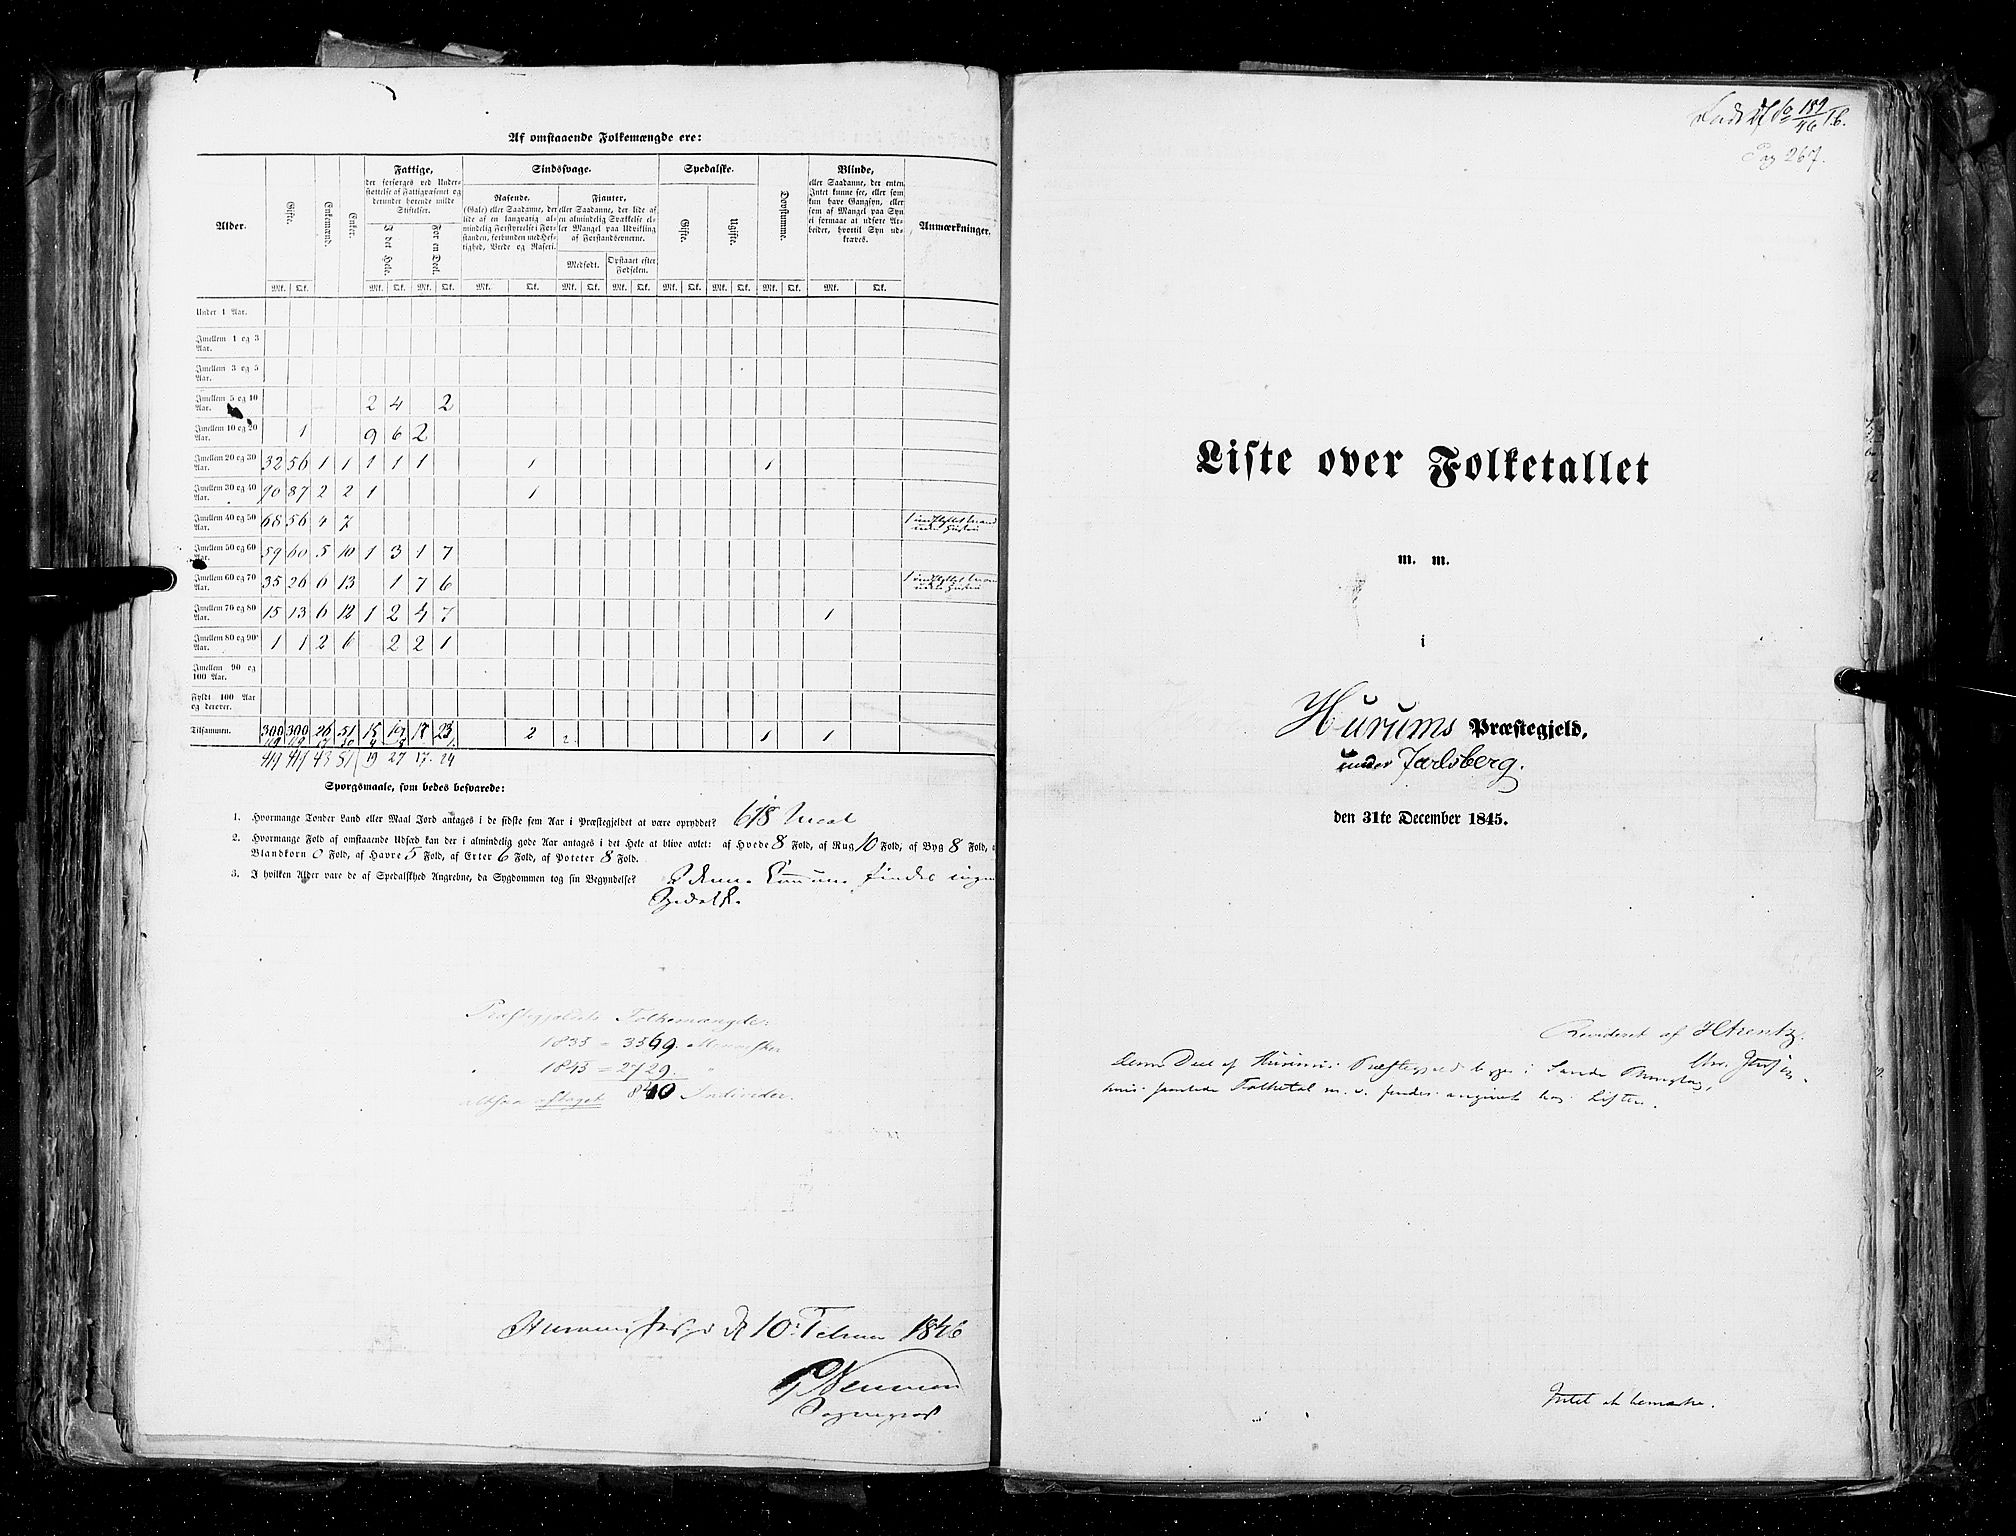 Af omstaaende Folkemængde ere:
Alder.
Gifte.
Enkemænd.
Enker.
Fattige,
der forsørges ved Under-
støttelse af Fattigvæsenet og
derunder hørende milde
Stiftelser.
I det Hele.
For en Deel.
Sindssvage.
Rasende.
(Gale) eller Saadanne, der
lide af en langvarig al-
mindelig Forstyrrelse i For-
standen, forbunden med Hef-
tighed, Vrede og Raseri.
Fjanter,
eller Saadanne, der lide af
en almindelig Svækkelse el-
ler Mangel paa Udvikling
af Forstandsevnerne.
Medfødt.
Opstaaet efter
Fødselen.
Spedalske.
Gifte.
Ugifte.
Døvstumme.
Blinde,
eller Saadanne, der enten
Intet kunne see, eller som
kun have Gangsyn, eller
som af Mangel paa Syn
ei formaae at udføre Ar-
beider, hvortil Syn ud-
kræves.
Anmærkninger.
Mk. Qk. Mk. Qk. Mk. Qk. Mk. Qk. Mk. Qk. Mk. Qk. Mk. Qk. Mk. Qk. Mk. Qk. Mk. Qk.
Under 1 Aar.
Imellem 1 og 3 Aar.
Imellem 3 og 5 Aar.
Imellem 5 og 10 Aar. 2 4 2
Imellem 10 og 20 Aar. 1 9 6 2
Imellem 20 og 30 Aar. 32 56 1 1 1 1 1 1 1
Imellem 30 og 40 Aar. 90 87 2 2 1 1
Imellem 40 og 50 Aar. 68 56 4 7
Imellem 50 og 60 Aar. 59 60 5 10 1 3 1 7
Imellem 60 og 70 Aar. 35 26 6 13 1 7 6
Imellem 70 og 80 Aar. 15 13 6 12 1 2 4 7 1
Imellem 80 og 90 Aar. 1 1 2 6 2 2 1
Imellem 90 og 100 Aar.
Fyldt 100 Aar og derover.
Tilsammen. 300 300 26 51 15 19 17 23 2 2 1 1
19 27 17 24
Spørgsmaale, som bedes besvarede:
1. Hvormange Tønder Land eller Maal Jord antages i de sidste fem Aar i Præstegjeldet at være opryddet? 618 Maal
2. Hvormange Fold af omstaaende Udsæd kan der i almindelig gode Aar antages i det Hele at blive avlet: af Hvede 8 Fold, af Rug 10 Fold, af Byg 8 Fold,
Blandkorn 0 Fold, af Havre 5 Fold, af Erter 6 Fold, af Poteter 8 Fold.
3. I hvilken Alder vare de af Spedalskhed Angrebne, da Sygdommen tog sin Begyndelse? findes ingen
Præstegjeldets Folkemængde:
1835 = 3569 Mennesker
1845 = 2729 "
altsaa aftaget 840 Individer.
10 Februar 1846
Neumann
Sognepræst
189
46
Pag 267.
Liste over Folketallet
m. m.
i
Hurums Præstegjeld,
under Jarlsberg.
den 31te December 1845.
Revideret af
Denne Deel af Hurums Præstegjeld ligger i
samlede Folketal m. v. findes Listen.
Intet at bemærke.